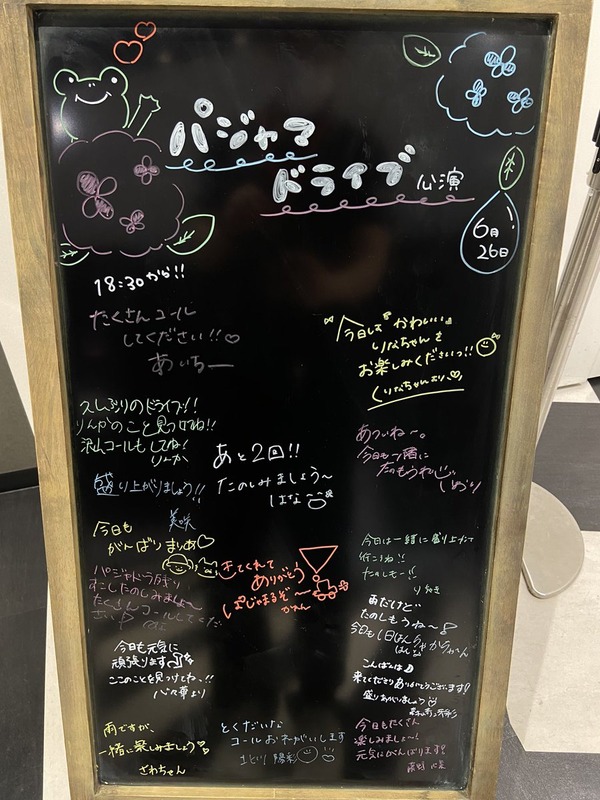 パジャマ
ドライブ 公演
6月
26日
18:30から!!
たくさんコール
してください!!♡
あいちー
今日も"かわいい"
りなちゃんを
お楽しみくださいっ!!
りなちゃんより♡
久しぶりのドライブ!!
りんかのこと見つけてね!!
沢山コールもしてね!
りんか
あと2回!!
たのしみましょう〜
はな
あついね〜。
今日も一緒に
たのもうれい
しおり
盛り上がりましょう!!
美咲
今日も
がんばりまりあ♡
きてくれて
ありがとう
ぱじゃまるぞ〜
かれん
パジャドラ残り
すこしたのしみましょ〜
たくさんコールしてくだ
さい♪
今日は一緒に盛り上がって
行こうね!!
たのしもー!!
雨だけど
たのしもうね〜♪
今日も1日はんらん
今日も元気に
頑張ります
ここのことを見つけてね、!!
心々華より
こんばんは♪
来てくださりありがとうございます!
盛り上がりましょう
雨ですが、
一緒に楽しみましょう♪
ざわちゃん
とくだいな
コールおねがいします
さとう 陽彩
今日もたくさん
楽しみましょ〜!
元気にがんばります!